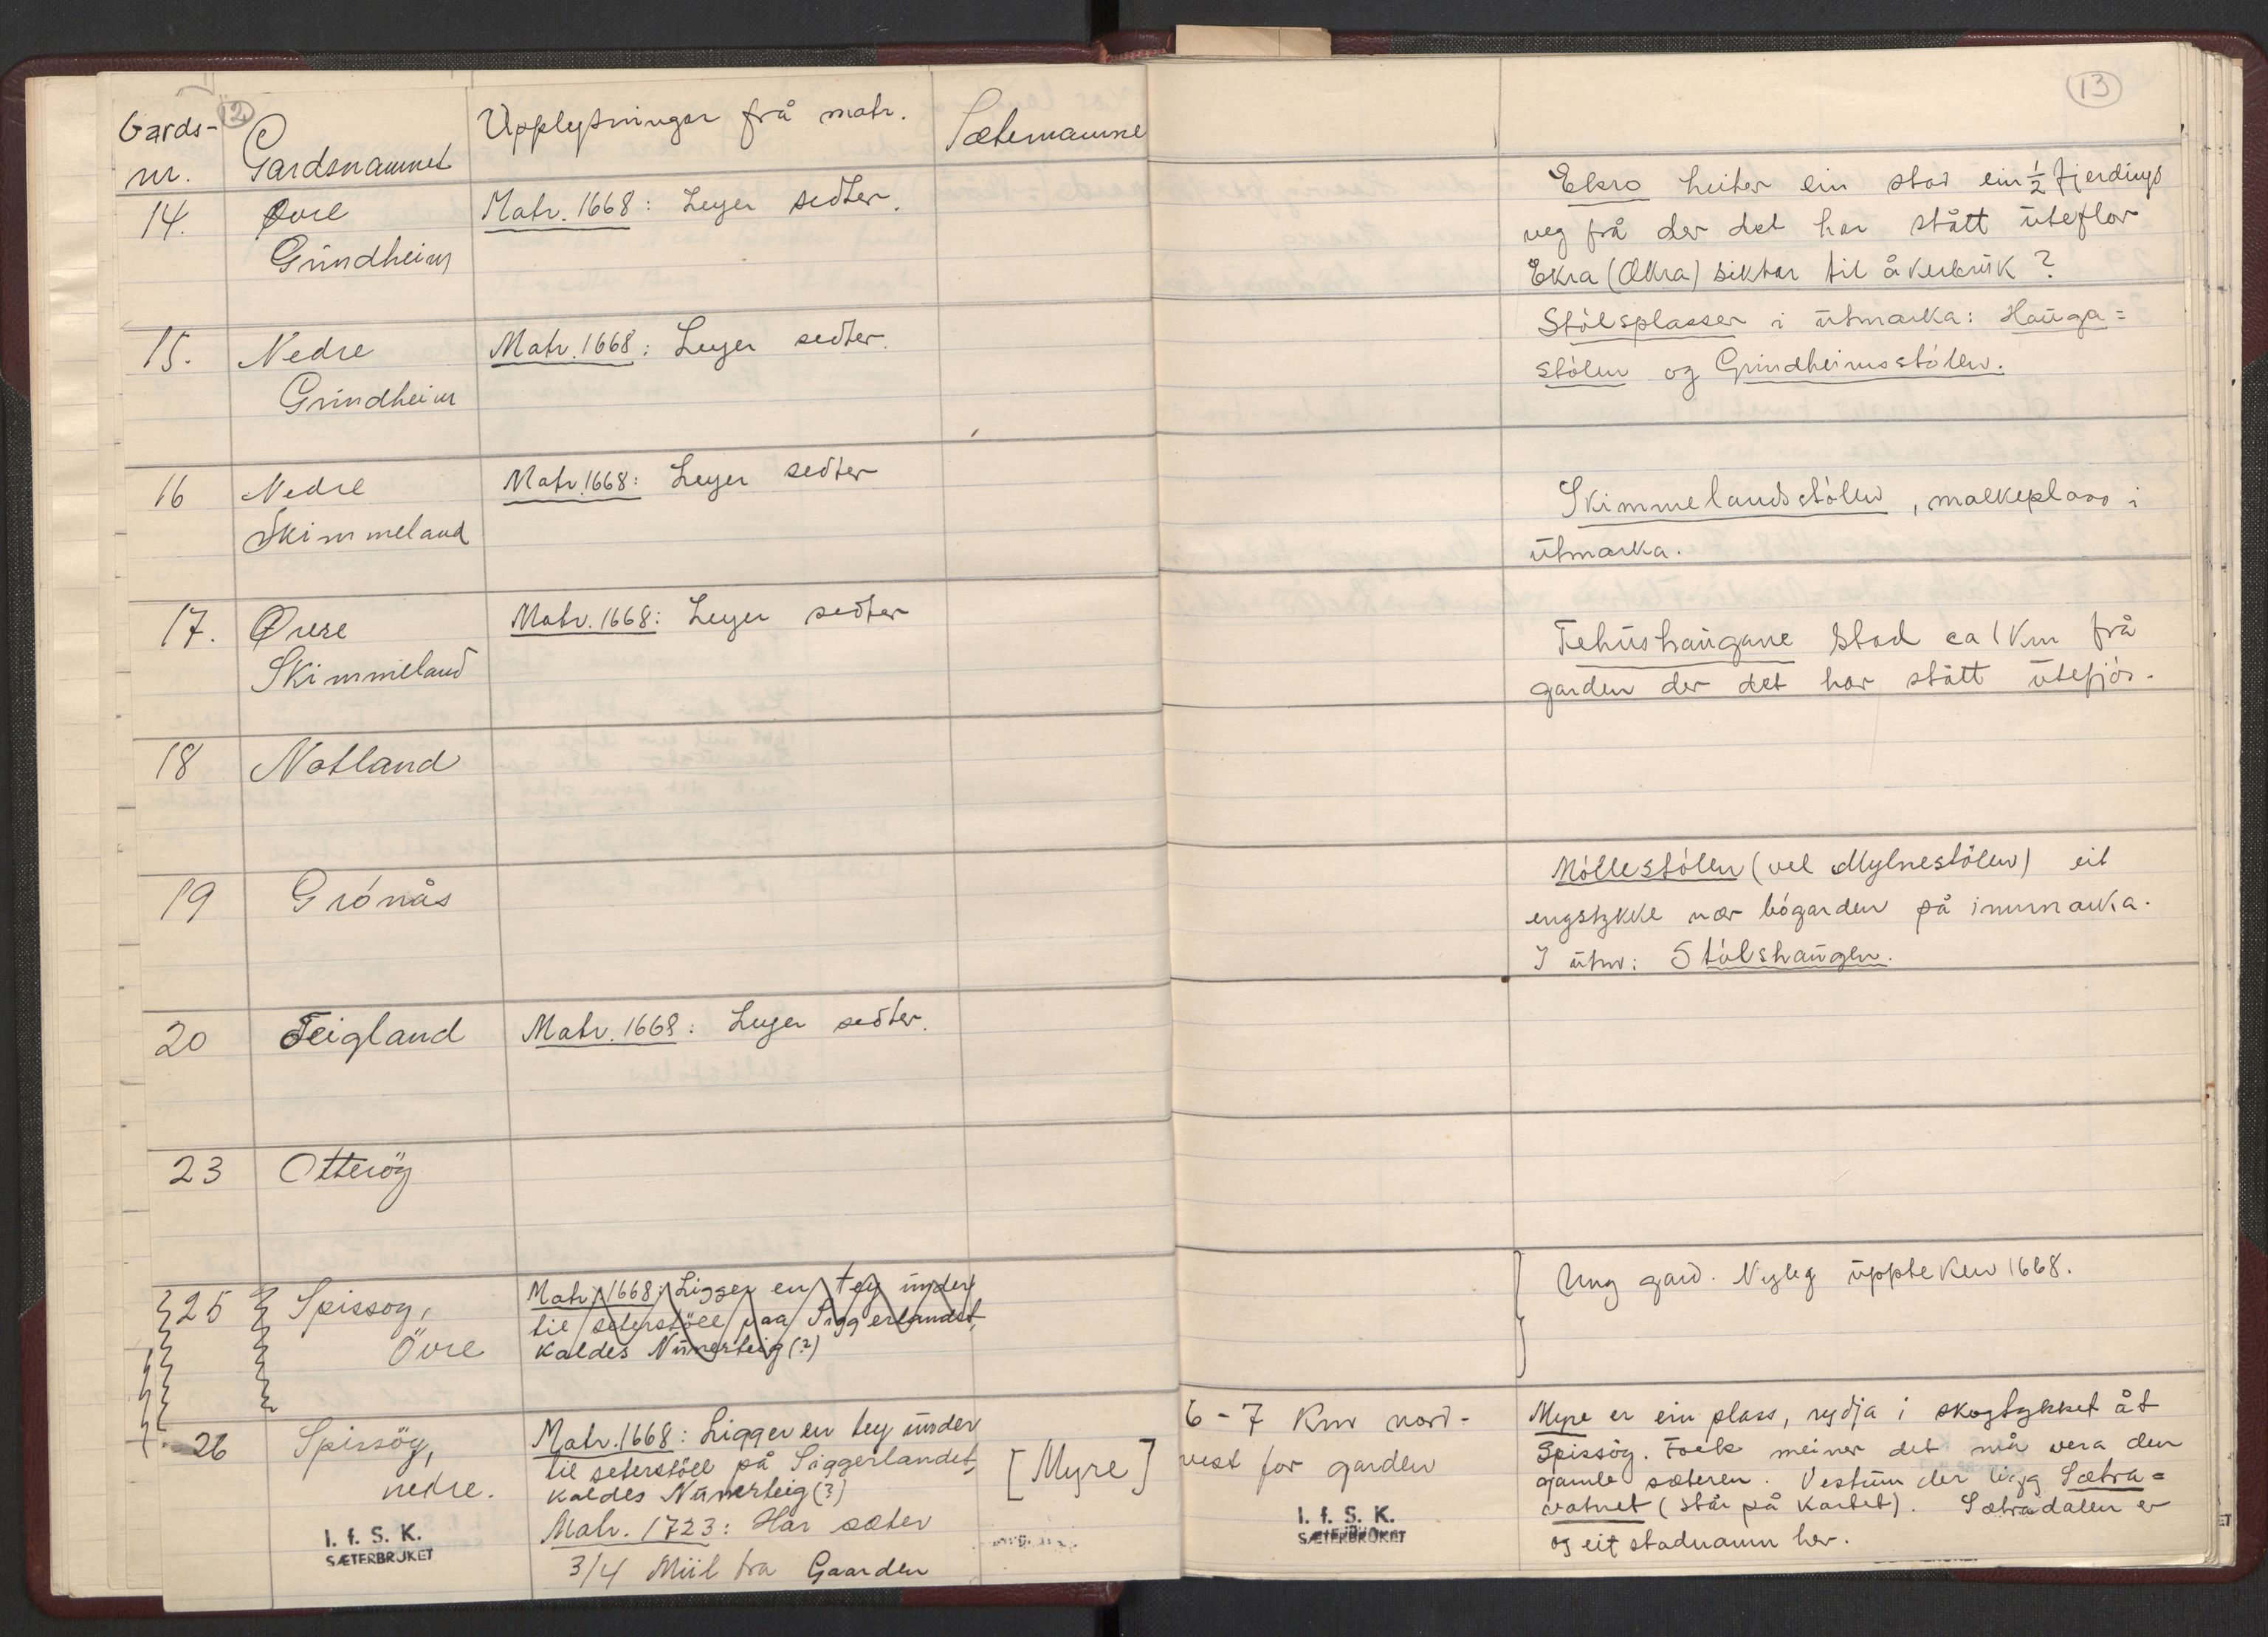 12
13
Gards-
nr.
Gardsnamnet
Upplysningar frå matr.
Sæternamne
14.
Øvre
Grindheim
Matr. 1668: Leyer sedter.
Ekro heiter ein stad ein ½ fjerdings
veg frå der det har stått uteflor
Ekra (Økra) siktar til åkerbruk?
15.
Nedre
Grindheim
Matr. 1668: Leyer sedter.
Stólsplasser i utmarka: Hauga=
stólen og Grindheimsstólen.
16
Nedre
Skimmeland
Matr. 1668: Leyer sedter
Skimmelandsstólen, mälkeplass i
utmarka.
17.
Øvre
Skimmeland
Matr. 1668: Leyer sedter
Fehushaugane stad ca 1 km frå
garden der det har stått utefjós.
18
Notland
19
Grónås
Móllestólen (vel Mylnestólen) eit
engstykke nær bógarden på innmarka.
I utm: Stólshaugen.
20
Teigland
Matr. 1668: Leyer sedter.
23
Otteröy
25
Spissøy,
Övre
Matr. 1668: Ligger en tey under
til seterstöll paa Siggerlandet,
kaldes Nunerteig (?)
Ung gard. Nyleg uppteken 1668.
26
Spissöy,
nedre.
Matr. 1668: Ligger en tey under
til seterstöll på Siggerlandet,
kaldes Nunerteig (?)
Matr. 1723: Har sæter
3/4 Miil fra Gaarden
[Myre]
6-7 km nord-
vest for garden
Myre er ein plass, rydja i skogstykket åt
Spissöy. Folk meiner det må vera den
gamle sæteren. Vestum der ligg Sætra=
vatnet (står på kartet). Sætradalen er
og eit stadnamn her.
I. f. S. K.
SÆTERBRUKET
I. f. S. K.
SÆTERBRUKET